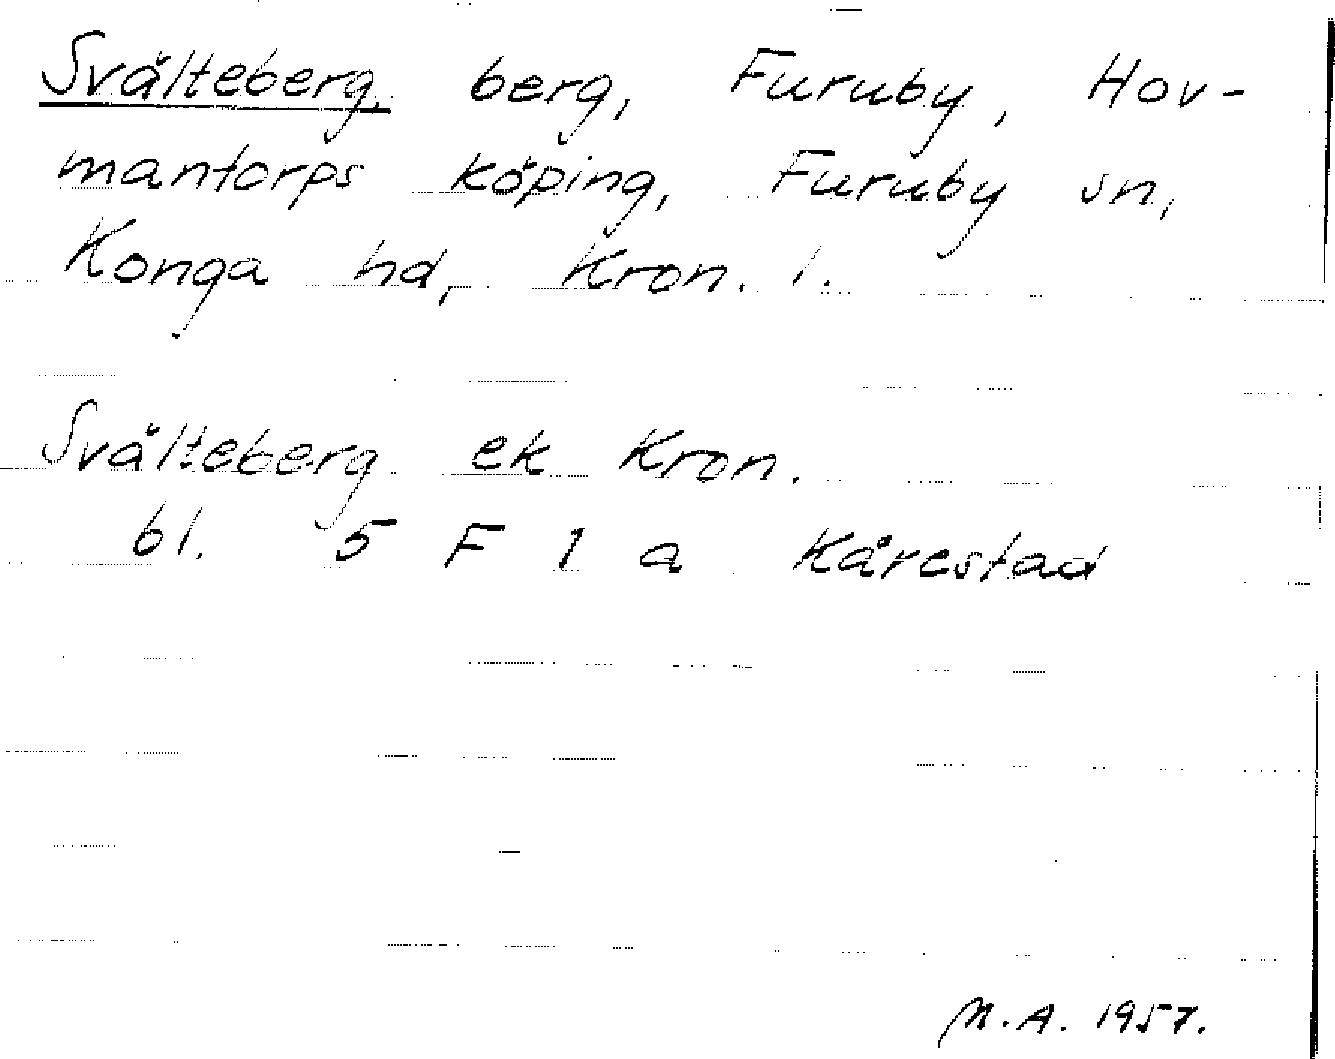 Svälteberg, berg, Furuby, Hov-
mantorps köping, Furuby sn,
Konga hd, Kron. l.
Svälteberg ek Kron.
bl. 5 F 1 a Kårestad
M.A. 1957.